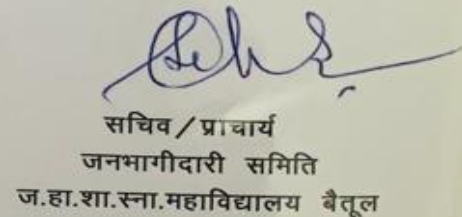 सचिव / प्राचार्य
जनभागीदारी समिति
ज.हा.शा.स्ना.महाविद्यालय बैतूल